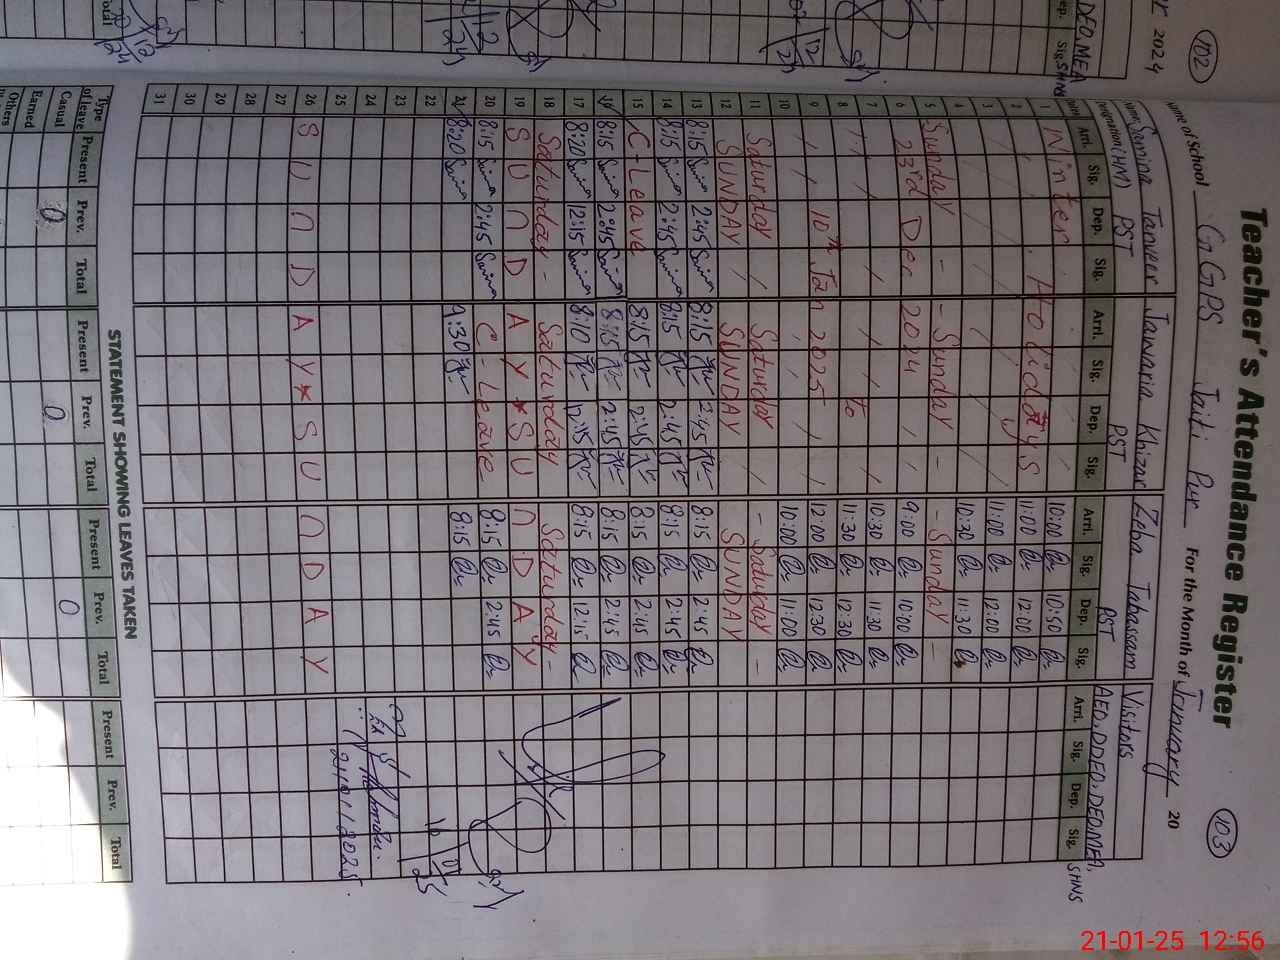 102
2024
DEO, MEA
Dep. Sig. SHNS
Teacher's Attendance Register
103
Name of School GGPS Jaiti Pur For the Month of January 20
Name Samina Tanveer Jawaria Khizar Zeba Tabassam Visitors
Designation (HM) PST PST PST AEO, DDEO, DEO, MEA, SHNS
Arri. Sig. Dep. Sig. Arri. Sig. Dep. Sig. Arri. Sig. Dep. Sig. Arri. Sig. Dep. Sig.
1 Winter Holidays 10:00 10:50
2 11:00 12:00
3 11:00 12:00
4 10:30 11:30
5 Sunday - - Sunday - - Sunday -
6 23rd Dec 2024 9:00 10:00
7 10:30 11:30
8 to 11:30 12:30
9 10th Jan 2025 12:00 12:30
10 10:00 11:00
11 Saturday Saturday - Saturday -
12 SUNDAY SUNDAY SUNDAY
13 8:15 2:45 8:15 2:45 8:15 2:45
14 8:15 2:45 8:15 2:45 8:15 2:45
15 C-Leave 8:15 2:45 8:15 2:45
16 8:15 2:45 8:15 2:45 8:15 2:45
17 8:20 12:15 8:10 12:15 8:15 12:15
18 Saturday - Saturday Saturday -
19 S U N D A Y * S U N D A Y
20 8:15 2:45 C-Leave 8:15 2:45
21 8:20 9:30 8:15
22
23
24
25
26 S U N D A Y * S U N D A Y
27
28
29
30
31
21/01/2025
STATEMENT SHOWING LEAVES TAKEN
Type of leave Present Prev. Total Present Prev. Total Present Prev. Total Present Prev. Total
Casual 0 0 0
Earned
Others
21-01-25 12:56